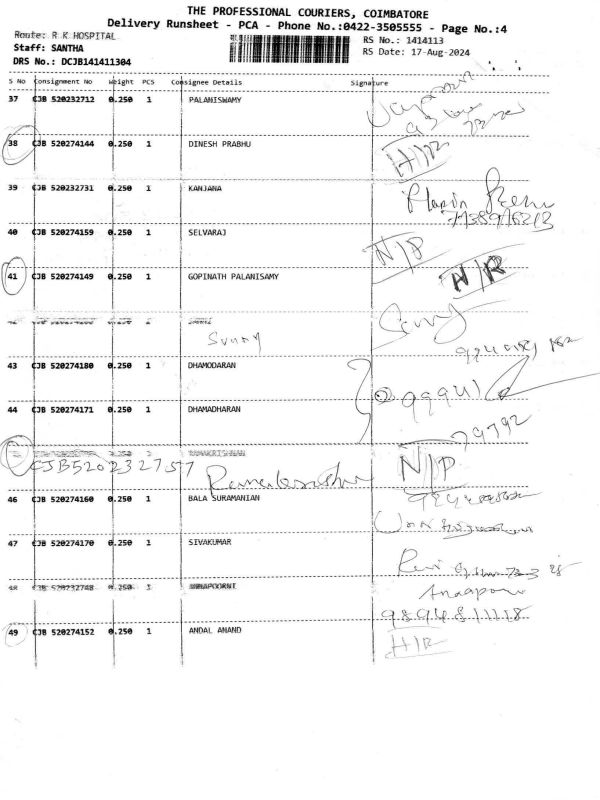 THE PROFESSIONAL COURIERS, COIMBATORE
Delivery Runsheet - PCA - Phone No.:0422-3505555 - Page No.:4
Route: R K HOSPITAL
RS No.: 1414113
Staff: SANTHA
RS Date: 17-Aug-2024
DRS No.: DCJB141411304
S No Consignment No Weight PCS Consignee Details Signature
37 CJB 520232712 0.250 1 PALANISWAMY
38 CJB 520274144 0.250 1 DINESH PRABHU
39 CJB 520232731 0.250 1 KANJANA
40 CJB 520274159 0.250 1 SELVARAJ N/P
41 CJB 520274149 0.250 1 GOPINATH PALANISAMY N/R
Sunny
43 CJB 520274180 0.250 1 DHAMODARAN
99941
44 CJB 520274171 0.250 1 DHAMADHARAN
79792
CJB520232757 Ramakrishnan N/P
46 CJB 520274160 0.250 1 BALA SURAMANIAN
47 CJB 520274170 0.250 1 SIVAKUMAR
48 CJB 520232748 0.250 1 ANNAPOORNI
9894811118
49 CJB 520274152 0.250 1 ANDAL ANAND